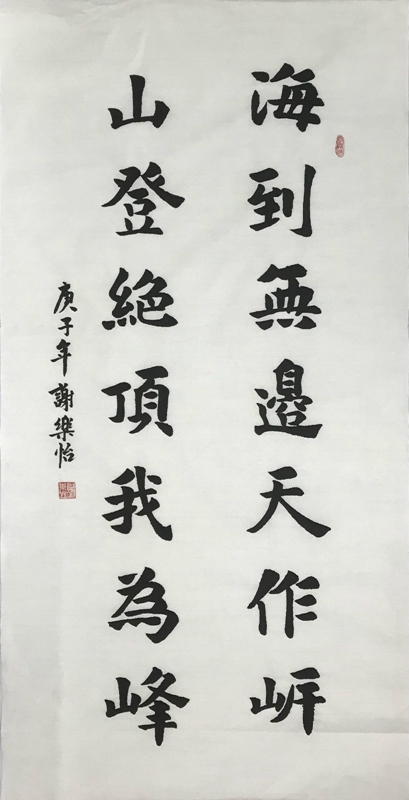 海到無邊天作岸
山登絶頂我為峰
庚子年謝樂怡